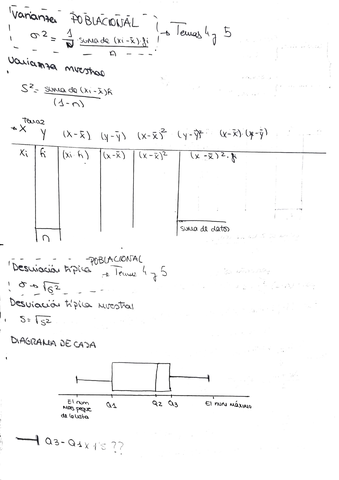 Varianza POBLACIONAL
σ² = 1/N suma de (xi - x̄)·fi / n → Temas 4 y 5
Varianza muestral
S² = suda de (xi - x̄)fi
(1-n)
Tema2
x y (x-x̄) (y-ȳ) (x-x̄)² (y-ȳ)² (x-x̄)·(y-ȳ)
xi fi (xi fi) (x-x̄) (x-x̄)² (x-x̄)²·fi
n
suma de datos
POBLACIONAL
Desviación típica → Tema 4 y 5
σ → √S²
Desviación típica muestral
S = √S²
DIAGRAMA DE CAJA
El num
mas peque
de la lista
Q1 Q2 Q3 El num máximo
Q3 - Q1 x 1'5 ??